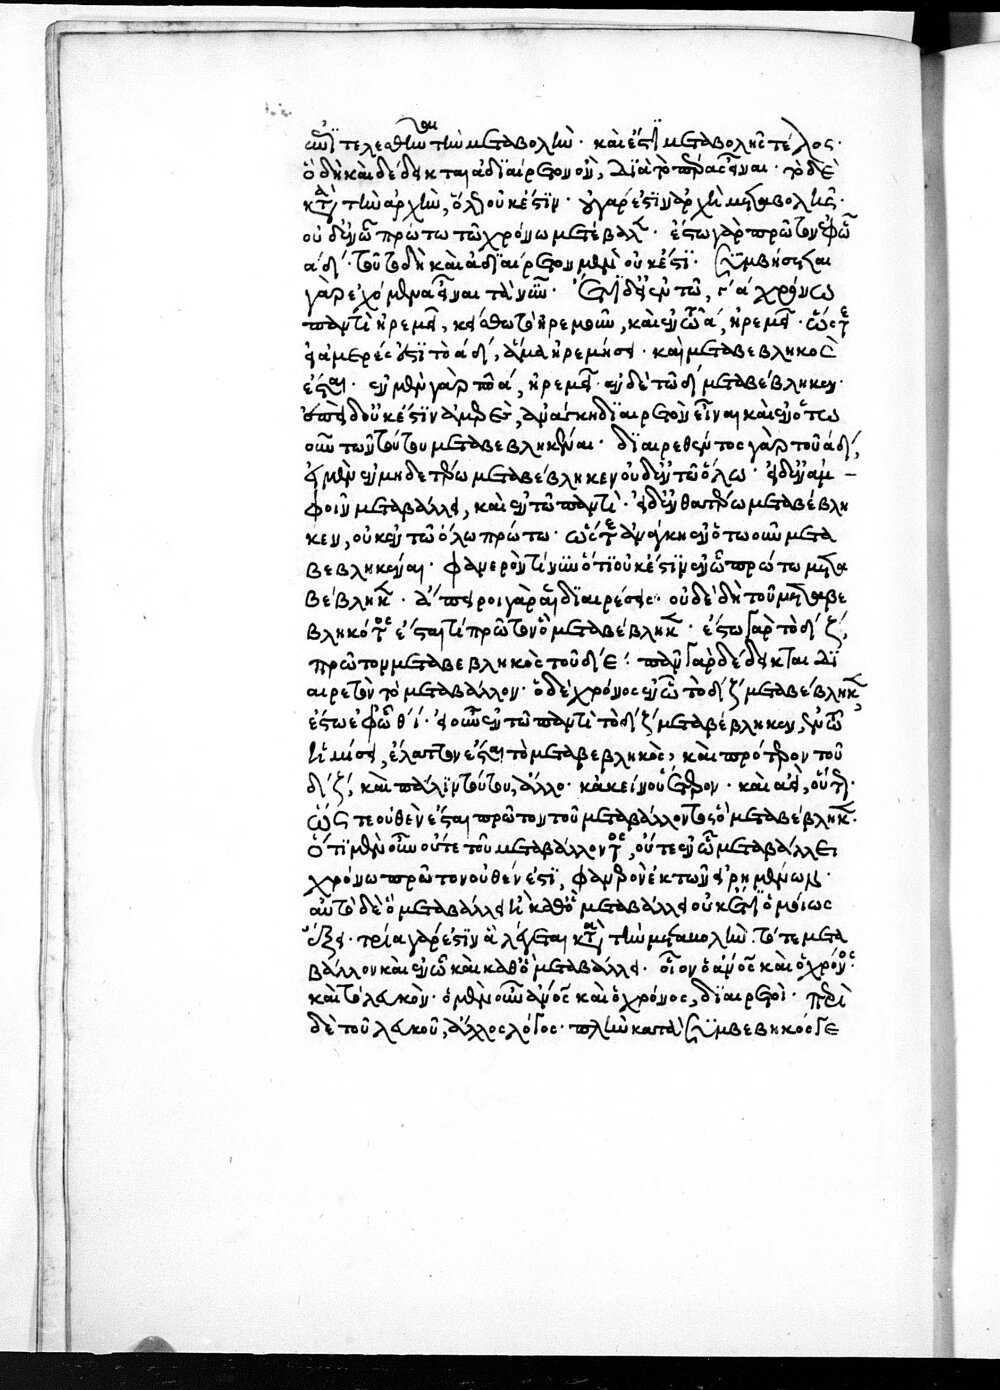 ἐπιτελεσθῆναι τὴν μεταβολὴν· καὶ ἔστι μεταβολῆς τέλος·
ὃ δὴ καὶ δέδεικται ἀδιαίρετον ὂν, διὰ τὸ πέρας εἶναι· τὸ δὲ
κατὰ τὴν ἀρχὴν, ὅλως οὐκ ἔστιν· οὐ γάρ ἐστιν ἀρχὴ μεταβολῆς·
οὐδ' ἐν ᾧ πρώτω τῶ χρόνω μετέβαλεν· ἔστω γὰρ πρῶτον ἐφ' ᾧ
αδ· τοῦτο δὴ καὶ ἀδιαίρετον μὲν οὐκ ἔστι· συμβήσεται
γὰρ ἐχόμενα εἶναι τὰ νῦν· ἔτι δ' εἰ ἐν τῶ γα χρόνω
παντὶ ἠρεμεῖ, κείσθω τὸ ἠρεμοῦν, καὶ ἐν ᾧ α, ἠρεμεῖ· ὥστε
εἰ ἀμερές ἐστι τὸ αδ, ἅμα ἠρεμήσει· καὶ μεταβεβληκὸς
ἔσται· ἐν μὲν γὰρ τῶ α, ἠρεμεῖ· ἐν δὲ τῶ δ μεταβέβληκεν·
ἐπεὶ δ' οὐκ ἔστιν ἀμερές, ἀνάγκη διαιρετὸν εἶναι καὶ ἐν ὁτω
οῦν τῶν τούτου μεταβεβληκέναι· διαιρεθέντος γὰρ τοῦ αδ,
εἰ μὲν ἐν μηδετέρω μεταβέβληκεν οὐδ' ἐν τῶ ὅλω· εἰ δ' ἐν ἀμ-
φοῖν μεταβάλλει, καὶ ἐν τῶ παντὶ· εἰ δ' ἐν θατέρω μεταβέβλη
κεν, οὐκ ἐν τῶ ὅλω πρώτω· ὥστε ἀνάγκη ἐν ὁτωοῦν μετα
βεβληκέναι· φανερὸν τοίνυν ὅτι οὐκ ἔστιν ἐν ᾧ πρώτω μετα
βέβληκεν· ἄπειροι γὰρ αἱ διαιρέσεις· οὐδὲ δὴ τοῦ μεταβε
βληκότος ἔσται τί πρῶτον ὃ μεταβέβληκεν· ἔστω γὰρ τὸ δζ,
πρῶτον μεταβεβληκὸς τοῦ δε· πᾶν γὰρ δέδεικται δι
αιρετὸν τὸ μεταβάλλον· ὁ δὲ χρόνος ἐν ᾧ τὸ δζ μεταβέβληκεν,
ἔστω ἐφ' ᾧ θι· εἰ οὖν ἐν τῶ παντὶ τὸ δζ μεταβέβληκεν, ἐν τῶ
ἡμίσει, ἔλαττον ἔσται τὸ μεταβεβληκὸς, καὶ πρότερον τοῦ
δζ, καὶ πάλιν τούτου, ἄλλο· κἀκείνου ἕτερον· καὶ αἰεὶ, οὕτως·
ὥστε οὐθὲν ἔσται πρῶτον τοῦ μεταβάλλοντος ὃ μεταβέβληκεν·
ὅτι μὲν οὖν οὔτε τοῦ μεταβάλλοντος, οὔτε ἐν ᾧ μεταβάλλει
χρόνω πρῶτον οὐθέν ἐστι, φανερὸν ἐκ τῶν εἰρημένων·
αὐτὸ δὲ ὃ μεταβάλλει ἢ καθὸ μεταβάλλει οὐκέτι ὁμοίως
ἕξει· τρία γάρ ἐστιν ἃ λέγεται κατὰ τὴν μεταβολὴν· τό τε μετα
βάλλον καὶ ἐν ᾧ καὶ καθὸ μεταβάλλει· οἷον ὁ ἄνθρωπος καὶ ὁ χρόνος
καὶ τὸ λευκὸν· ὁ μὲν οὖν ἄνθρωπος καὶ ὁ χρόνος, διαιρετοὶ· περὶ
δὲ τοῦ λευκοῦ, ἄλλος λόγος· πλὴν κατὰ συμβεβηκός γε